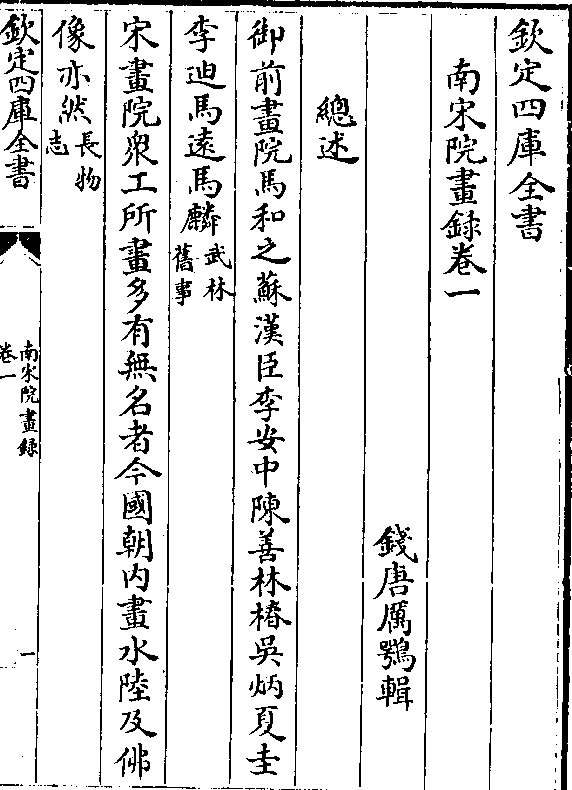 欽定四庫全書
南宋院畫録卷一
錢唐厲鶚輯
總述
御前畫院馬和之蘇漢臣李安中陳善林椿吳炳夏圭
李迪馬遠馬麟武林舊事
宋畫院衆工所畫多有無名者今國朝内畫水陸及佛
像亦然長物志
欽定四庫全書
南宋院畫録
卷一
一